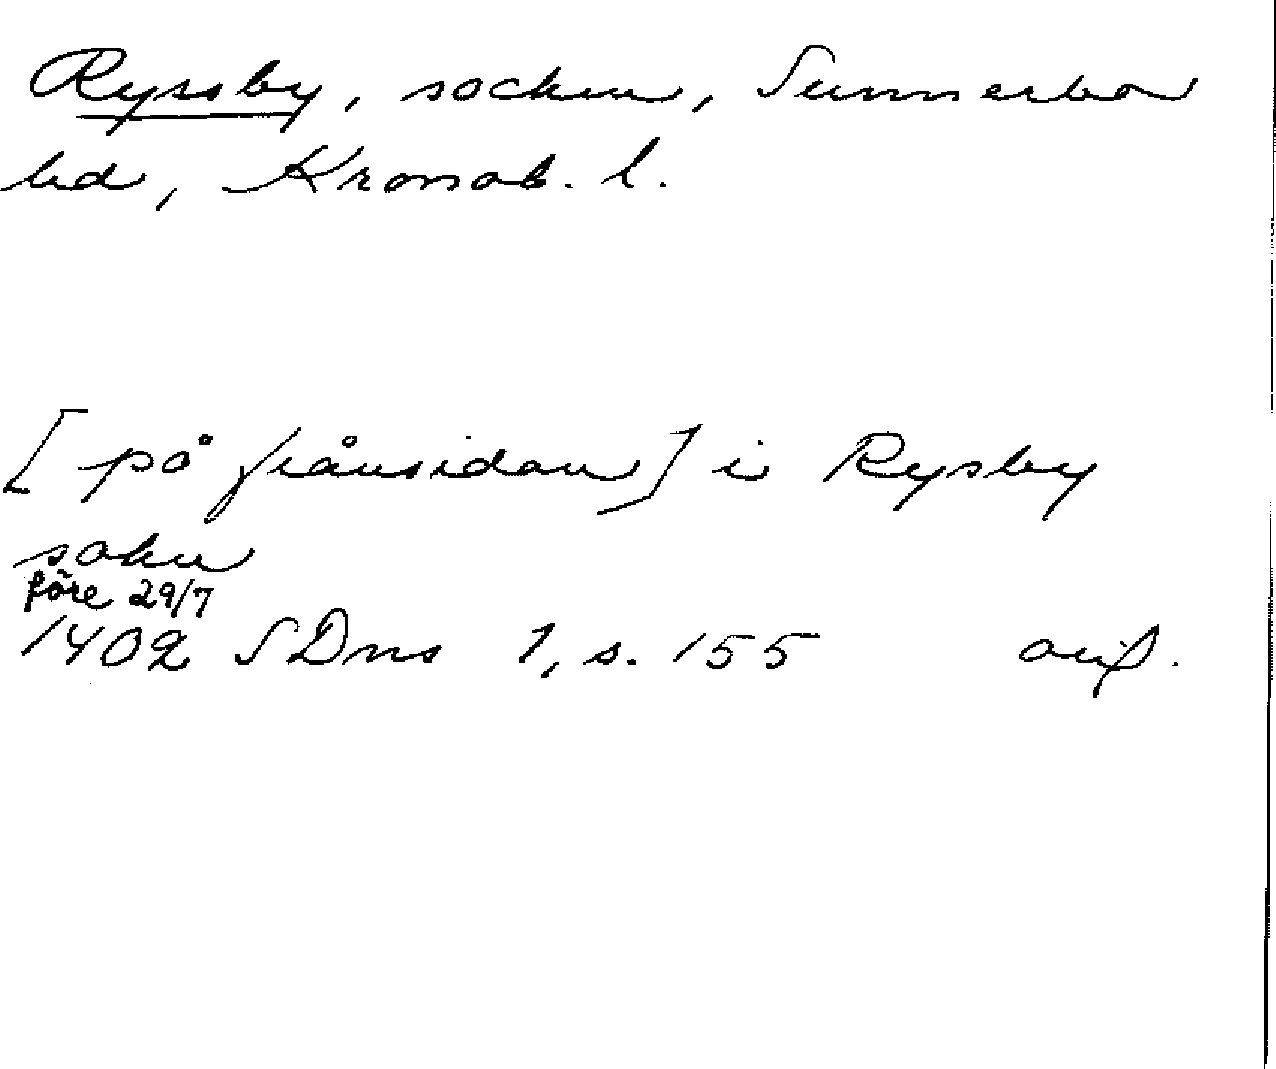 Ryssby, socken, Sunnerbo
hd, Kronob. l.
[på frånsidan] i Rysby
sokn
före 29/7
1402 SDns 1, s. 155 avs.